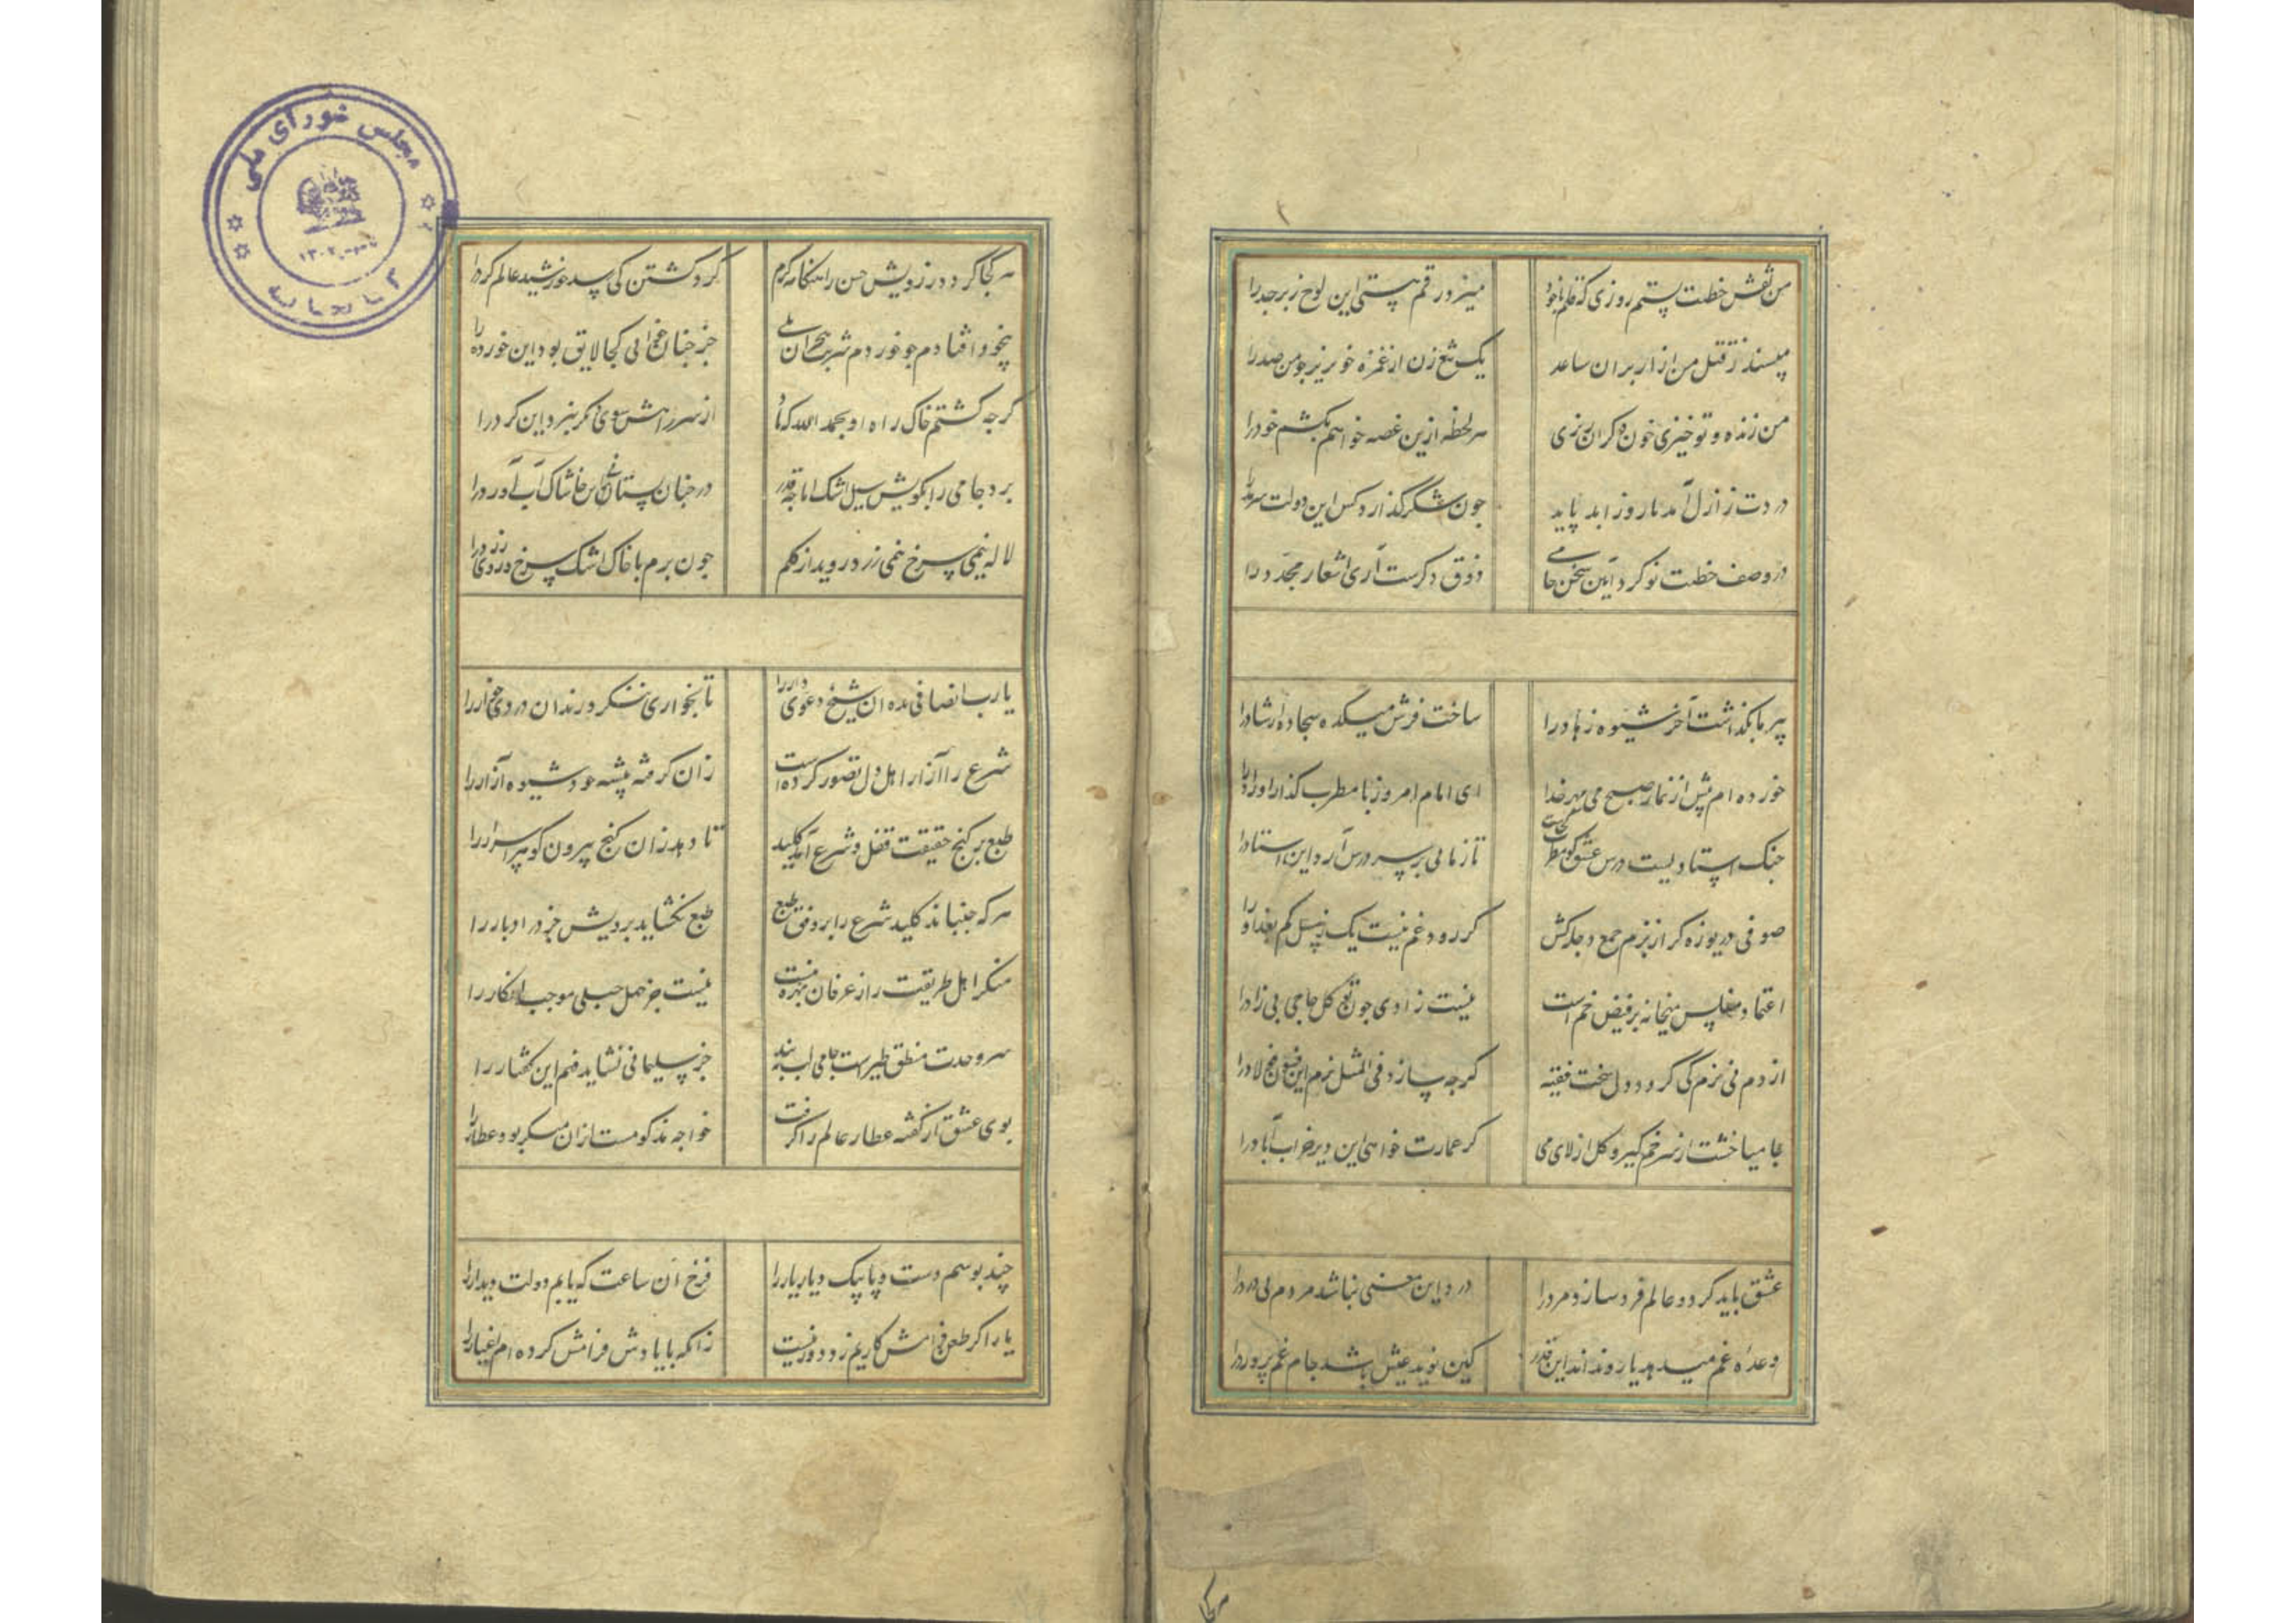 من نقش خطت بستم روزی که قلم با خود
میزد رقم هستی این لوح زبرجد را
مپسند ز قتل من آزار بران ساعد
یک تیغ زن از غمزه خونریز چو من صد را
من زنده و تو خیزی خون دگران ریزی
هر لحظه ازین غصه خواهم بکشم خود را
دردت ز ازل آمد تا روز ابد پاید
چون شکر گذارد کس این دولت سرمد را
در وصف خطت نو کرد آیین سخن جامی
ذوق دگرست آری اشعار مجدد را
پیر ما بگذاشت آخر شیوه زهاد را
ساخت فرش میکده سجاده ارشاد را
خورده ام پیش از نماز صبح می بهر خدا
ای امام امروز با مطرب گذار اوراد را
چنگ استادیست درس عشق گو مطرب کجاست
تا زمانی بر سر درس آرد این استاد را
صوفی دریوزه گر از بزم جمع دجله کش
گر رود غم نیست یک زنبیل کم بغداد را
اعتماد مفلس میخانه بر فیض خم است
نیست زادی چون توکل حاجی بی زاد را
از دم نی نرم کی گردد دل سخت فقیه
گرچه سازد فی المثل نرم این فسون فولاد را
جامیا خشت از سر خم گیر و گل از لای می
گر عمارت خواهی این دیر خراب آباد را
عشق باید کز دو عالم فرد سازد مرد را
درد این معنی نباشد مردم بی درد را
وعده غم میدهد یار و نداند این قدر
کین نوید عیش باشد جام غم پرورد را
هر کجا گردد ز رویش حسن را هنگامه گرم
گرد گشتن کی رسد خورشید عالم گرد را
بیخود افتادم چو خوردم شربت هجران بلی
جز چنان خوابی کجا لایق بود این خورد را
گرچه گشتم خاک راه او بحمد الله که باد
از سر راهش سوی دیگر نبرد این گرد را
برد جامی را بکویش سیل اشک اما چه قدر
در چنان بستان خس خاشاک آب آورد را
لاله نیمی سرخ نیمی زرد روید از گلم
چون برم با خاک اشک سرخ و روی زرد را
یا رب انصافی بده آن شیخ دعوی دار را
تا بخواری ننگرد رندان دردی خوار را
شرع را آزار اهل دل تصور کرده است
زان گرفته پیشه خود شیوه آزار را
طبع بر گنج حقیقت قفل و شرع آمد کلید
تا دهد زان گنج بیرون گوهر اسرار را
هر که جنباند کلید شرع را بر وفق طبع
طبع نگشاید برویش جز در ادبار را
منکر اهل طریقت را ز عرفان بهره نیست
نیست جز جهل جبلی موجب انکار را
سر وحدت منطق طیرست جامی لب ببند
جز سلیمانی نشاید فهم این گفتار را
بوی عشق از گفته عطار عالم را گرفت
خواجه مزکومست ازان منکر بود عطار را
چند بوسم دست و پا پیک دیار یار را
فرخ آن ساعت که یابم دولت دیدار را
یار اگر طعن فرامش کاریم زد دور نیست
زانکه با یادش فرامش کرده ام اغیار را
مجلس شورای ملی
کتابخانه
۱۳۰۲
هر کجا